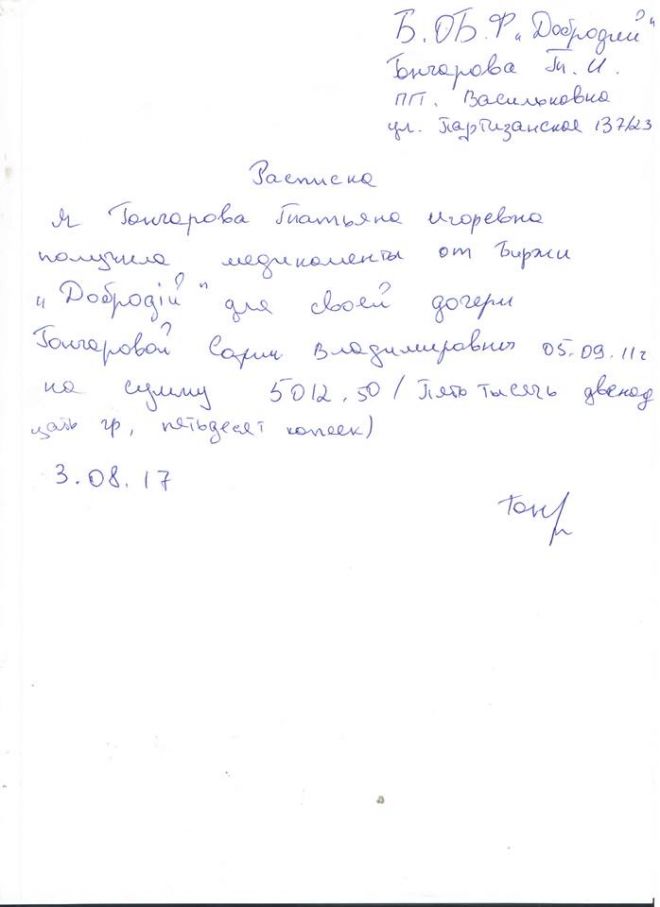 Б.ОБ.Ф „Добродий"
Гончарова Т. И.
ПГТ. Васильковка
ул. Партизанская 137/23
Расписка
Я Гончарова Татьяна Игоревна
получила медикаменты от Биржи
„Добродій" для своей дочери
Гончаровой Владимировны 05.09.11г
на сумму 5012,50 / Пять тысяч двенад
цать гр, пятьдесят копеек)
3.08.17
Гонч